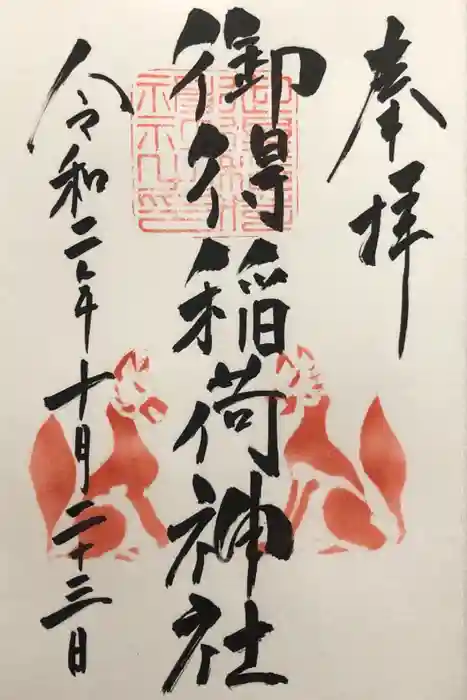 奉拝
御得稲荷神社
令和二年十月二十三日